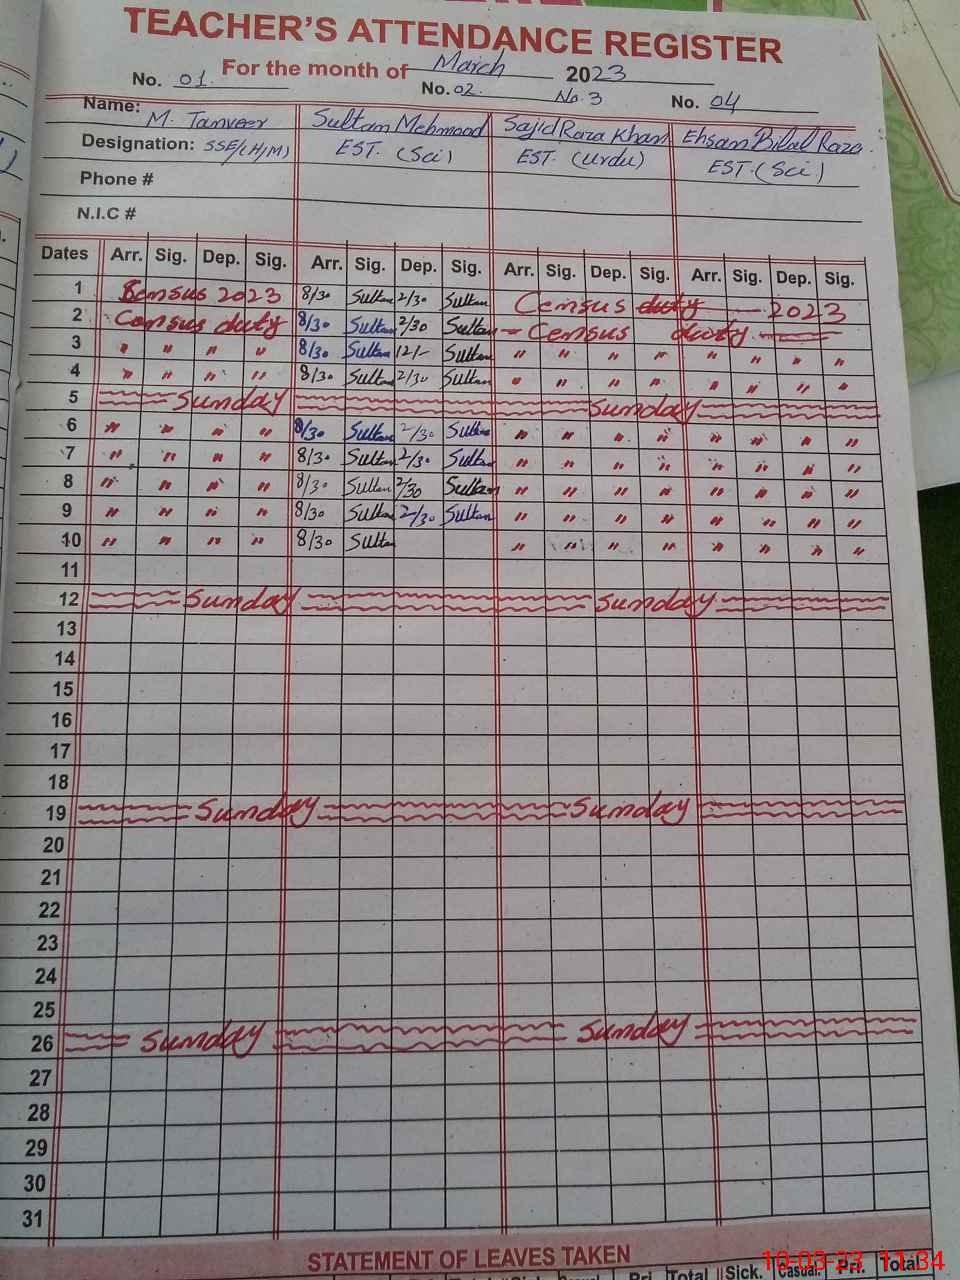 TEACHER'S ATTENDANCE REGISTER
For the month of March 2023
No. 01 No. 02 No. 3 No. 04
Name: M. Tanveer Sultan Mehmood Sajid Raza Khan Ehsan Bilal Raza
Designation: SSE/(H/M) EST. (Sci) EST. (Urdu) EST. (Sci)
Phone #
N.I.C #
Dates Arr. Sig. Dep. Sig. Arr. Sig. Dep. Sig. Arr. Sig. Dep. Sig. Arr. Sig. Dep. Sig.
1 Census 2023 8/30 Sultan 2/30 Sultan Census duty 2023
2 Census duty 8/30 Sultan 2/30 Sultan Census duty
3 " " " " 8/30 Sultan 12/- Sultan " " " " " " " "
4 " " " " 8/30 Sultan 2/30 Sultan " " " " " " " "
5 Sunday Sunday
6 " " " " 8/30 Sultan 2/30 Sultan " " " " " " " "
7 " " " " 8/30 Sultan 2/30 Sultan " " " " " " " "
8 " " " " 8/30 Sultan 2/30 Sultan " " " " " " " "
9 " " " " 8/30 Sultan 2/30 Sultan " " " " " " " "
10 " " " " 8/30 Sultan " " " " " " " "
11
12 Sunday Sunday
13
14
15
16
17
18
19 Sunday Sunday
20
21
22
23
24
25
26 Sunday Sunday
27
28
29
30
31
STATEMENT OF LEAVES TAKEN
Pri. Total Sick. Casual. Pri. Total
10-03-23 11:34